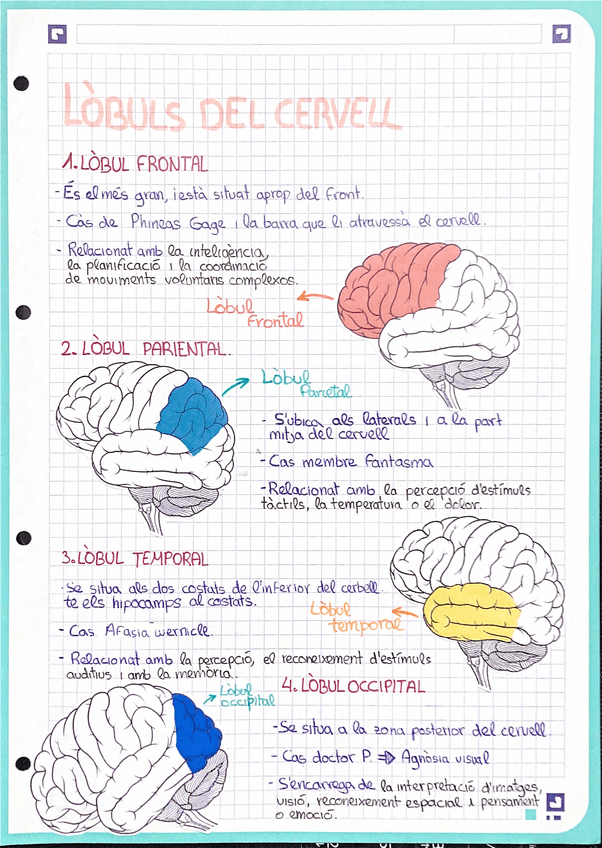 LÒBULS DEL CERVELL
1. LÒBUL FRONTAL
- És el més gran, i està situat aprop del front.
- Cas de Phineas Gage i la barra que li atravessà el cervell.
- Relacionat amb la inteligència,
la planificació i la coordinació
de moviments voluntaris complexos.
Lòbul
Frontal
2. LÒBUL PARIENTAL.
Lòbul
Parietal
- S'ubica als laterals i a la part
mitja del cervell
- Cas membre fantasma
- Relacionat amb la percepció d'estímuls
tàctils, la temperatura o el dolor.
3. LÒBUL TEMPORAL
- Se situa als dos costats de l'inferior del cerbell.
te els hipocamps al costats.
Lòbul
temporal
- Cas Afasia wernicke.
- Relacionat amb la percepció, el reconeixement d'estímuls
auditius i amb la memòria..
Lòbul
occipital
4. LÒBUL OCCIPITAL
- Se situa a la zona posterior del cervell.
- Cas doctor P. ⇒ Agnòsia visual
- S'encarrega de la interpretació d'imatges,
visió, reconeixement espacial i pensament
o emoció.